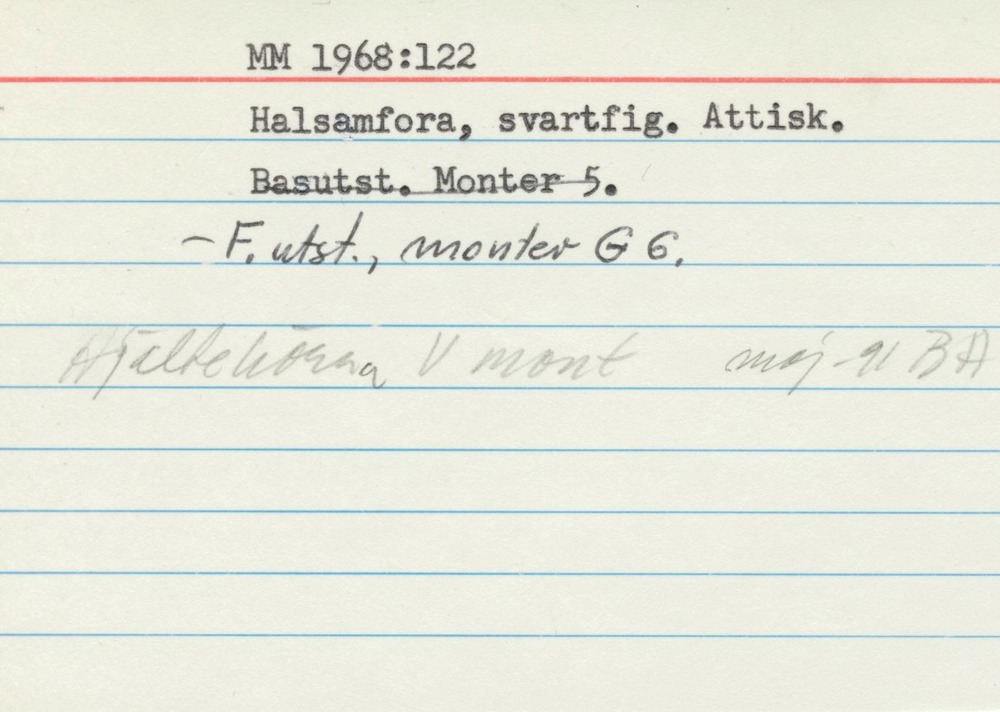 MM 1968:122
Halsamfora, svartfig. Attisk.
Basutst. Monter 5.
– F. utst., monter G 6.
Hjältehörna V mont maj -91 BA